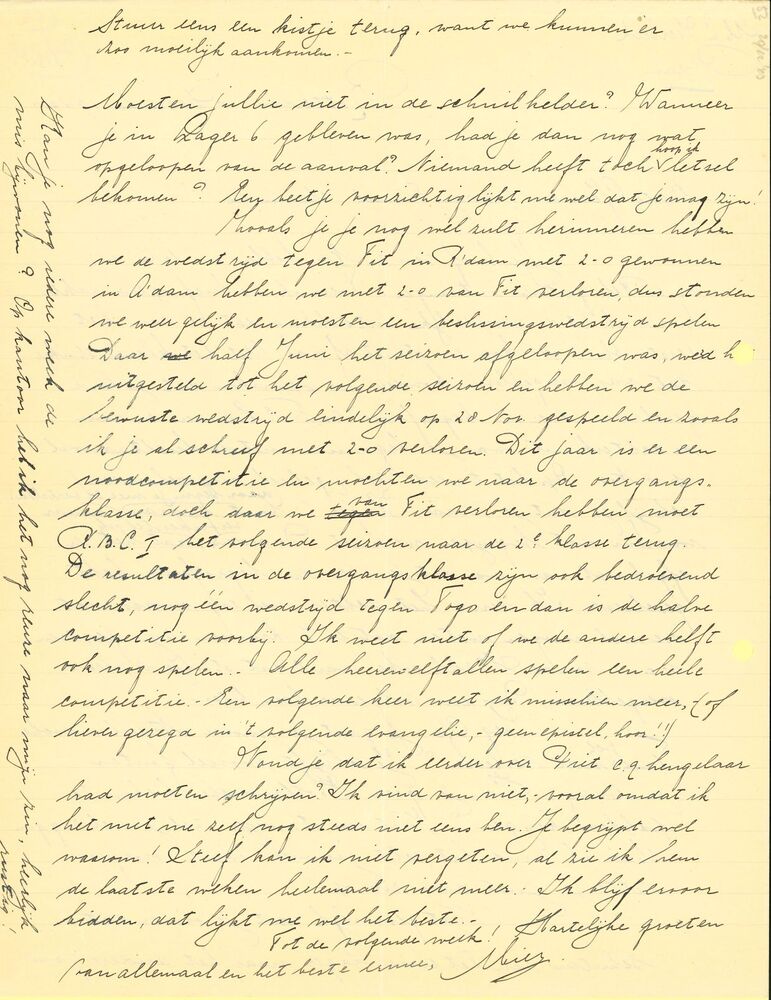 Stuur eens een kistje terug, want we kunnen er
zoo moeilijk aankomen.-
Moesten jullie niet in de schuilkelder? Wanneer
je in Lager 6 gebleven was, had je dan nog wat
opgeloopen van de aanval? Niemand heeft toch hoop ik letsel
bekomen? Een beetje voorzichtig lijkt me wel dat je mag zijn!
Zooals je je nog wel zult herinneren hebben
we de wedstrijd tegen Fit in R'dam met 2-0 gewonnen
in A'dam hebben we met 2-0 van Fit verloren, dus stonden
we weer gelijk en moesten een beslissingswedstrijd spelen
Daar we half Juni het seizoen afgeloopen was, werd h
uitgesteld tot het volgende seizoen en hebben we de
bewuste wedstrijd eindelijk op 28 Nov. gespeeld en zooals
ik je al schreef met 2-0 verloren. Dit jaar is er een
noodcompetitie en mochten we naar de overgangs-
klasse, doch daar we tegen van Fit verloren hebben moet
R.B.C. I het volgende seizoen naar de 2e klasse terug.
De resultaten in de overgangsklasse zijn ook bedroevend
slecht, nog één wedstrijd tegen Togo en dan is de halve
competitie voorbij. Ik weet niet of we de andere helft
ook nog spelen.- Alle heerenelftallen spelen een heele
competitie.- Een volgende keer weet ik misschien meer, (of
liever gezegd in 't volgende evangelie,- geen epistel, hoor!!)
Vond je dat ik eerder over Piet c.q. hengelaar
had moeten schrijven? Ik vind van niet,- vooral omdat ik
het met me zelf nog steeds niet eens ben. Je begrijpt wel
waarom! Steef kan ik niet vergeten, al zie ik hem
de laatste weken heelemaal niet meer.- Ik blijf ervoor
bidden, dat lijkt me wel het beste.-
Tot de volgende week! Hartelijke groeten
van allemaal en het beste ermee, Miez.
Kan je nog iedere week de
mis bijwonen? Op kantoor heb ik het nog reuze naar mijn zin, heerlijk
rustig!